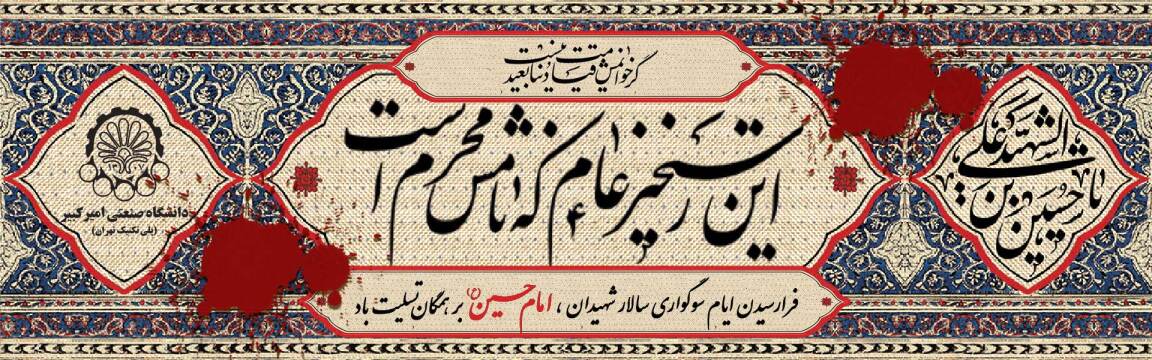 گر خوانمش قیامت دنیا بعید نیست
این رستخیز عام که نامش محرم است
فرارسیدن ایام سوگواری سالار شهیدان ، امام حسین (ع) بر همگان تسلیت باد
یا حسین بن علی الشهید
دانشگاه صنعتی امیرکبیر
(پلی تکنیک تهران)